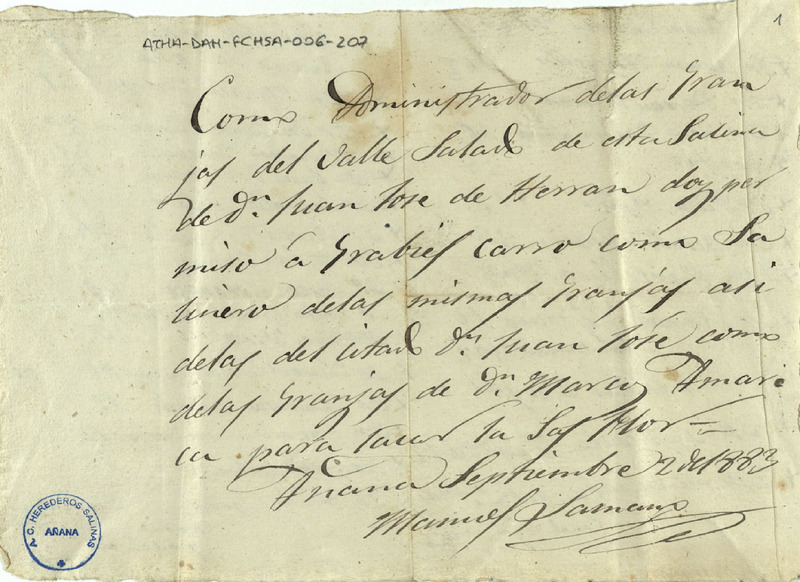 1
ATHA-DAH-FCHSA-006-207
Como Administrador delas Gran
jas del Valle Salado de esta Salina
de Dn. Juan Jose de Herran doy per
miso á Grabiel carro como Sa
linero delas mismas Granjas asi
delas del citado Dn. Juan José como
delas Granjas de Dn. Marcos Amari
ca para sacar la Sal Flor=
Añana Septiembre 2 de 1883
Manuel Samano
C. HEREDEROS SALINAS
AÑANA